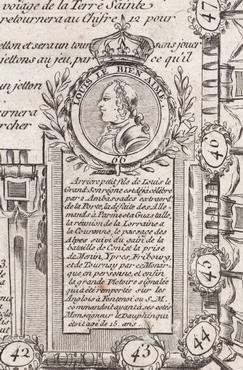 voiage de la Terre Sainte
retournera au Chifre 12 pour
jetton et sera un tour sans jouer
jettons au jeu, par ce qu'il
un jetton
tournera
rcher
LOUIS LE BIEN AIMÉ.
66
Arriere petit fils de Louis le
Grand Son regne est déja célébre
par 2 Ambassades extraord.
de la Porte, la défaite des Alle
mands à Parme et à Guastalle,
la réunion de la Lorraine a
la Couronne, le passage des
Alpes suivi du gain de la
bataille de Coni, et la prise
de Menin, Ypres, Fribourg,
et de Tournay par ce Monar-
que en personne, et enfin
la grande Victoire signalée
qui a été remportée sur les
Anglois à Fontenoi ou S. M.
commandant ayant à ses cotés
Monseigneur le Dauphin qui
étoit agé de 15 ans.
47
46
45
44
43
42